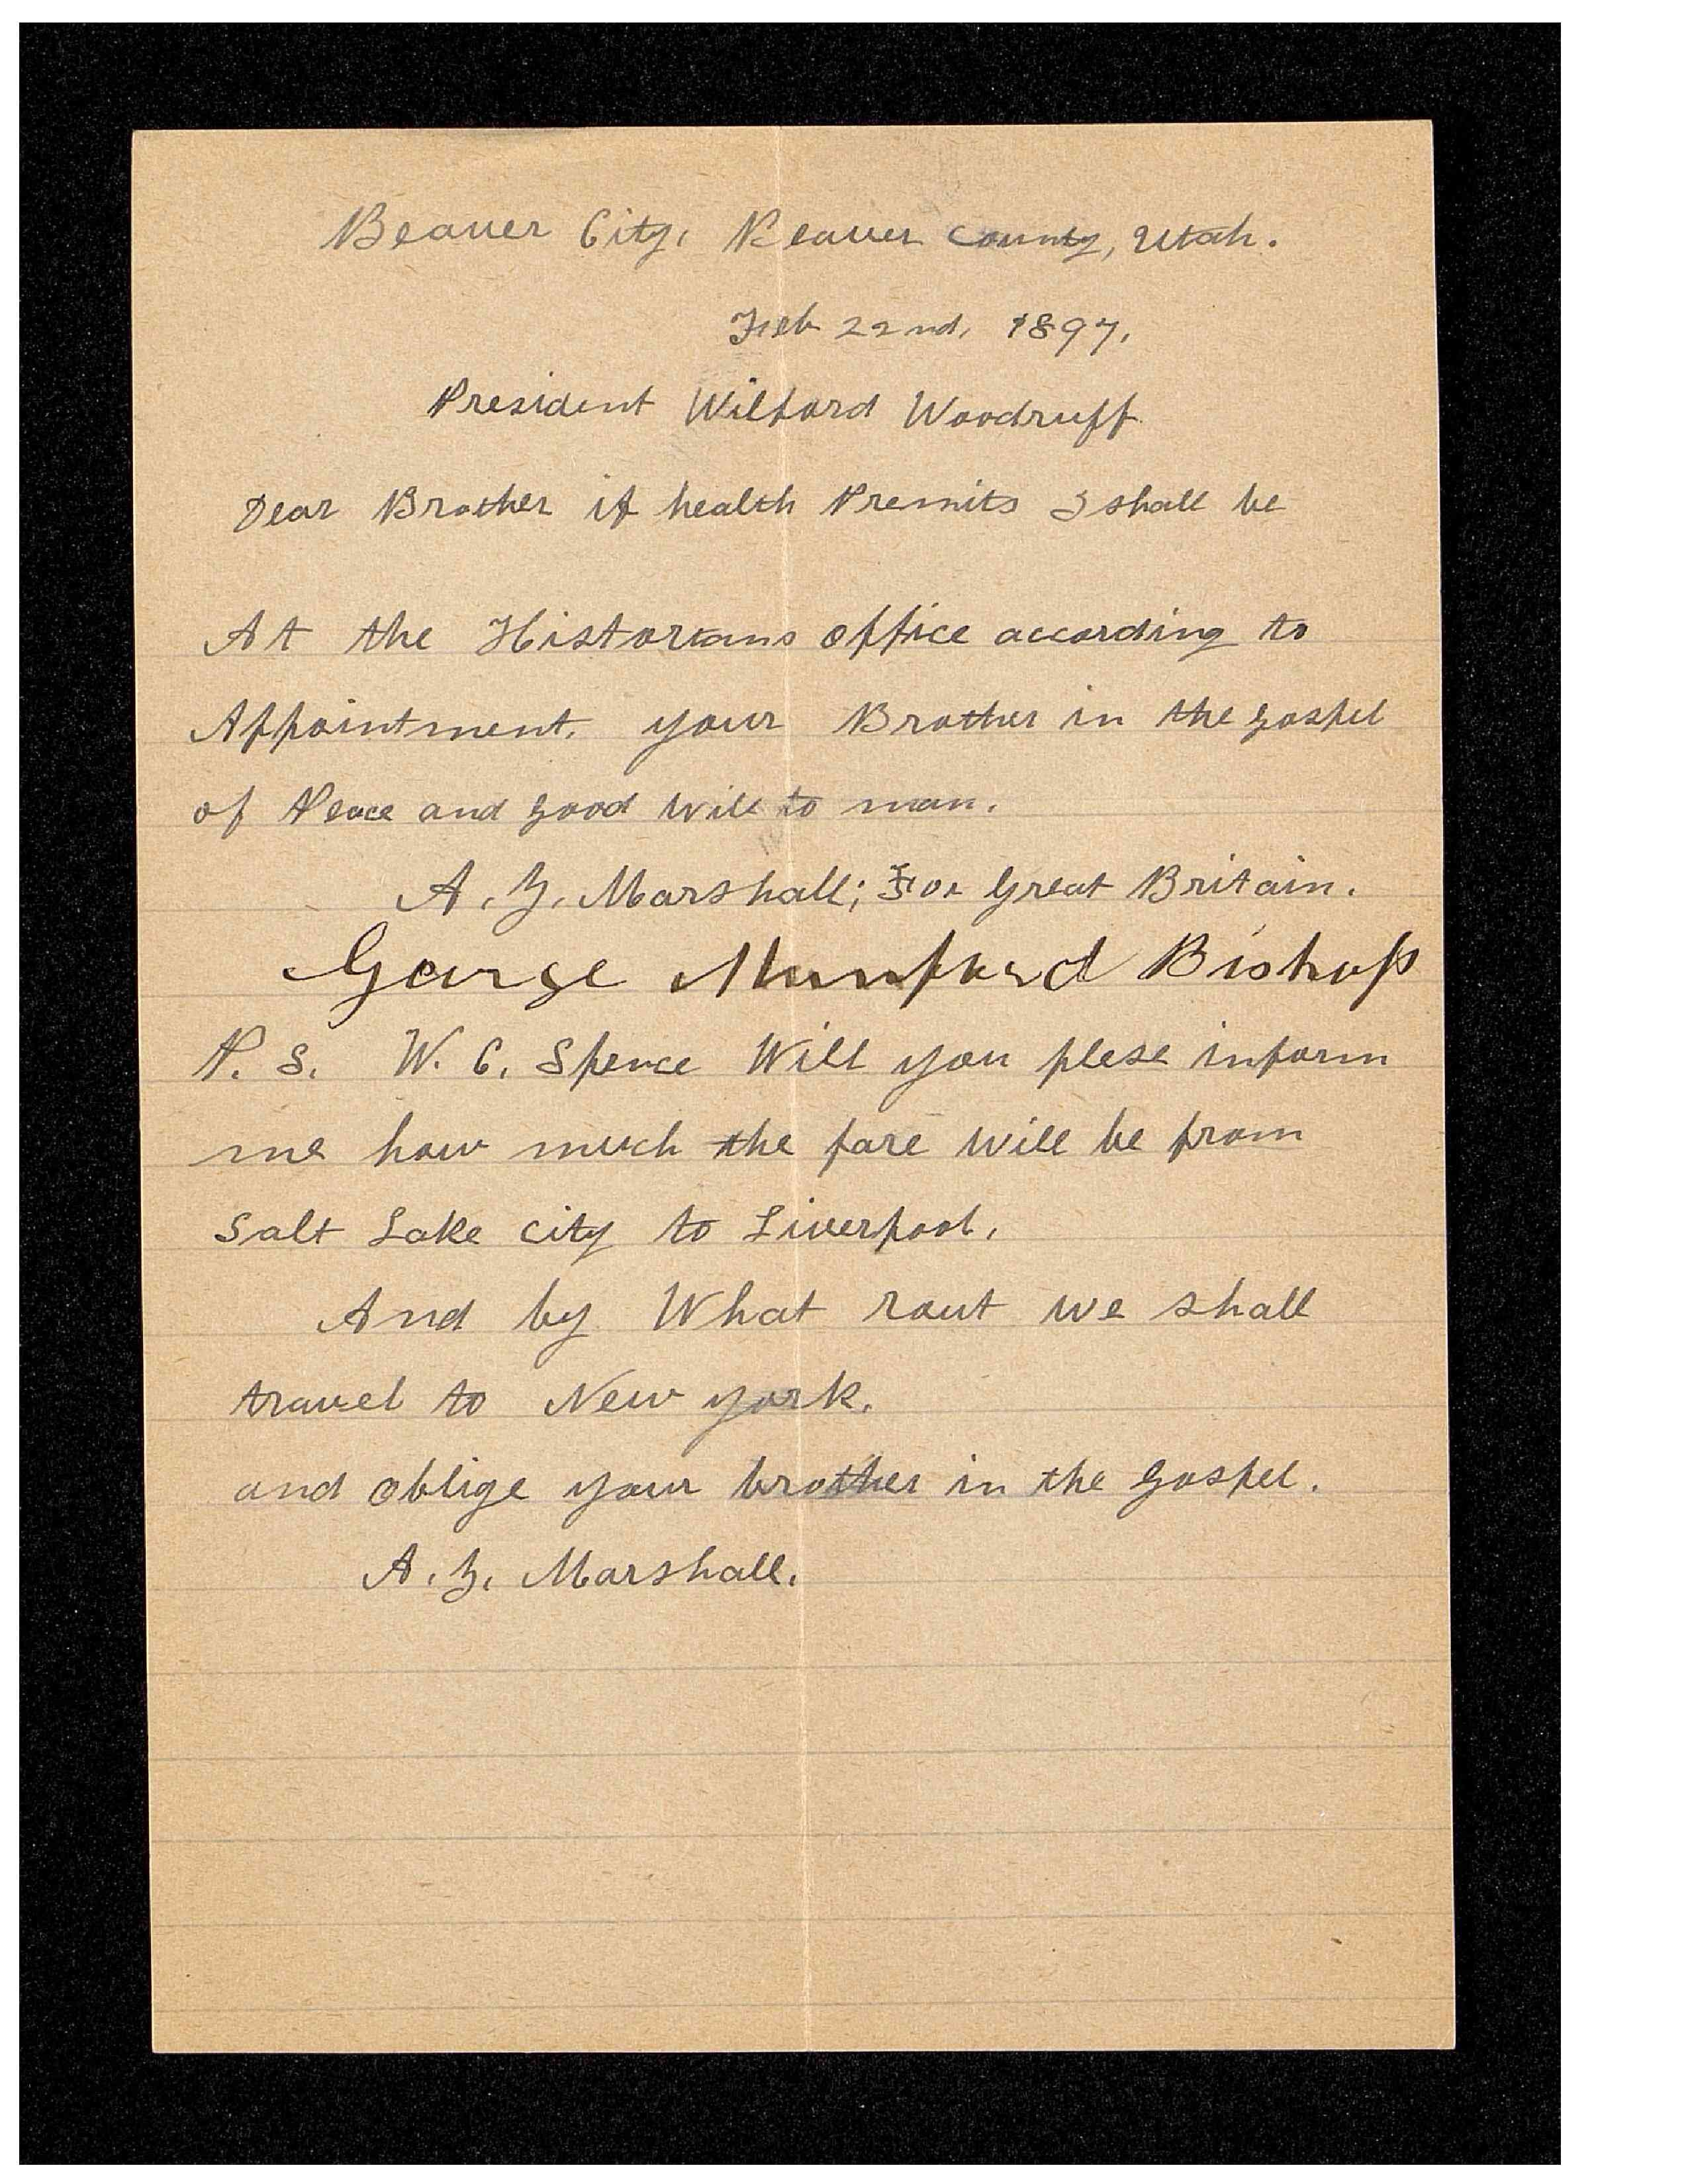 Beaver City, Beaver County, Utah.
Feb 22nd, 1897.
President Wilford Woodruff
Dear Brother if health Premits I shall be
At the Historians office according to
Appointment. your Brother in the gospel
of Peace and good will to man.
A. Z. Marshall; For Great Britain.
George Munford Bishop
P. S. W. C. Spence Will you plese inform
me how much the fare will be from
Salt Lake city to Liverpool.
And by What rout we shall
travel to New york.
and oblige your brother in the gospel.
A. Z. Marshall.